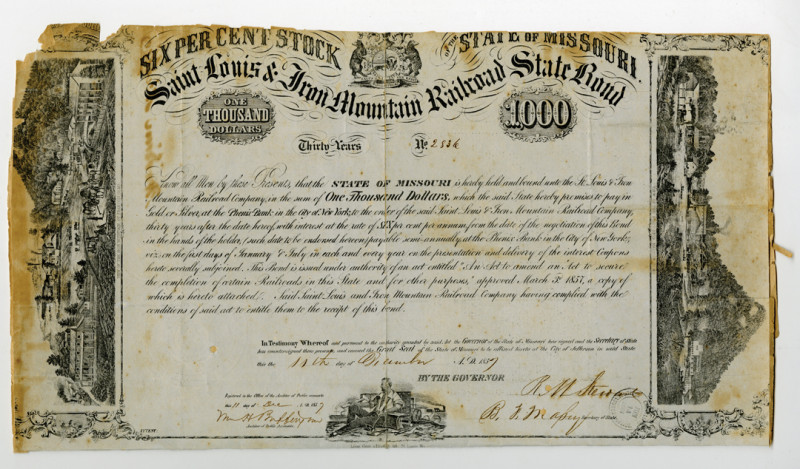 SIX PER CENT STOCK OF THE STATE OF MISSOURI.
Saint Louis & Iron Mountain Railroad State Bond
ONE THOUSAND DOLLARS
1000
Thirty Years No 2836
Know all Men by these Presents, that the STATE OF MISSOURI is hereby held and bound unto the St. Louis & Iron
Mountain Railroad Company, in the sum of One Thousand Dollars, which the said State hereby promises to pay in
Gold or Silver, at the Phenix Bank in the City of New York, to the order of the said Saint Louis & Iron Mountain Railroad Company,
thirty years after the date hereof, with interest at the rate of SIX per cent per annum from the date of the negotiation of this Bond
in the hands of the holder, (such date to be endorsed hereon) payable semi-annually at the Phenix Bank in the City of New York,
viz: on the first days of January & July in each and every year on the presentation and delivery of the interest Coupons
hereto severally subjoined. This Bond is issued under authority of an act entitled "An Act to amend an Act to secure
the completion of certain Railroads in this State and for other purposes," approved March 3d 1857, a copy of
which is hereto attached. Said Saint Louis and Iron Mountain Railroad Company having complied with the
conditions of said act to entitle them to the receipt of this bond.
In Testimony Whereof and pursuant to the authority granted by said Act the Governor of the State of Missouri has signed and the Secretary of State
has countersigned these presents, and caused the Great Seal of the State of Missouri to be affixed hereto at the City of Jefferson in said State
this 11th day of December A.D. 1857
BY THE GOVERNOR
Registered in the Office of the Auditor of Public Accounts
this 11 day of Dec 1857
Wm H Buffington
Auditor of Public Accounts
R M Stewart
B. F. Massey Secretary of State